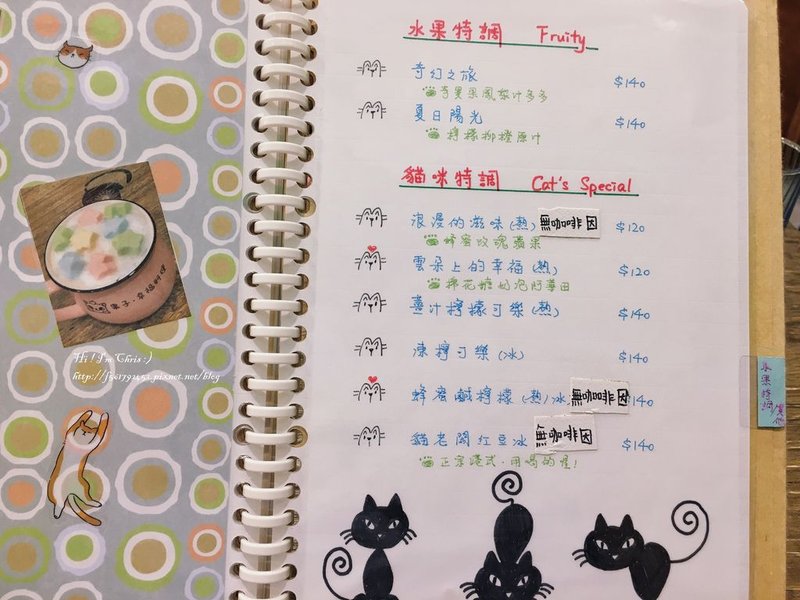 水果特調 Fruity
奇幻之旅 $140
奇異果鳳梨汁多多
夏日陽光 $140
檸檬柳橙原汁
貓咪特調 Cat's Special
浪漫的滋味(熱) 無咖啡因 $120
蜂蜜玫瑰蘋果
雲朵上的幸福(熱) $120
棉花糖奶泡阿華田
薑汁檸檬可樂(熱) $140
凍檸可樂(冰) $140
蜂蜜鹹檸檬(熱)冰 無咖啡因 $140
貓老闆紅豆冰 無咖啡因 $140
正宗港式.用喝的喔!
水果特調
Hi! I'm Chris :)